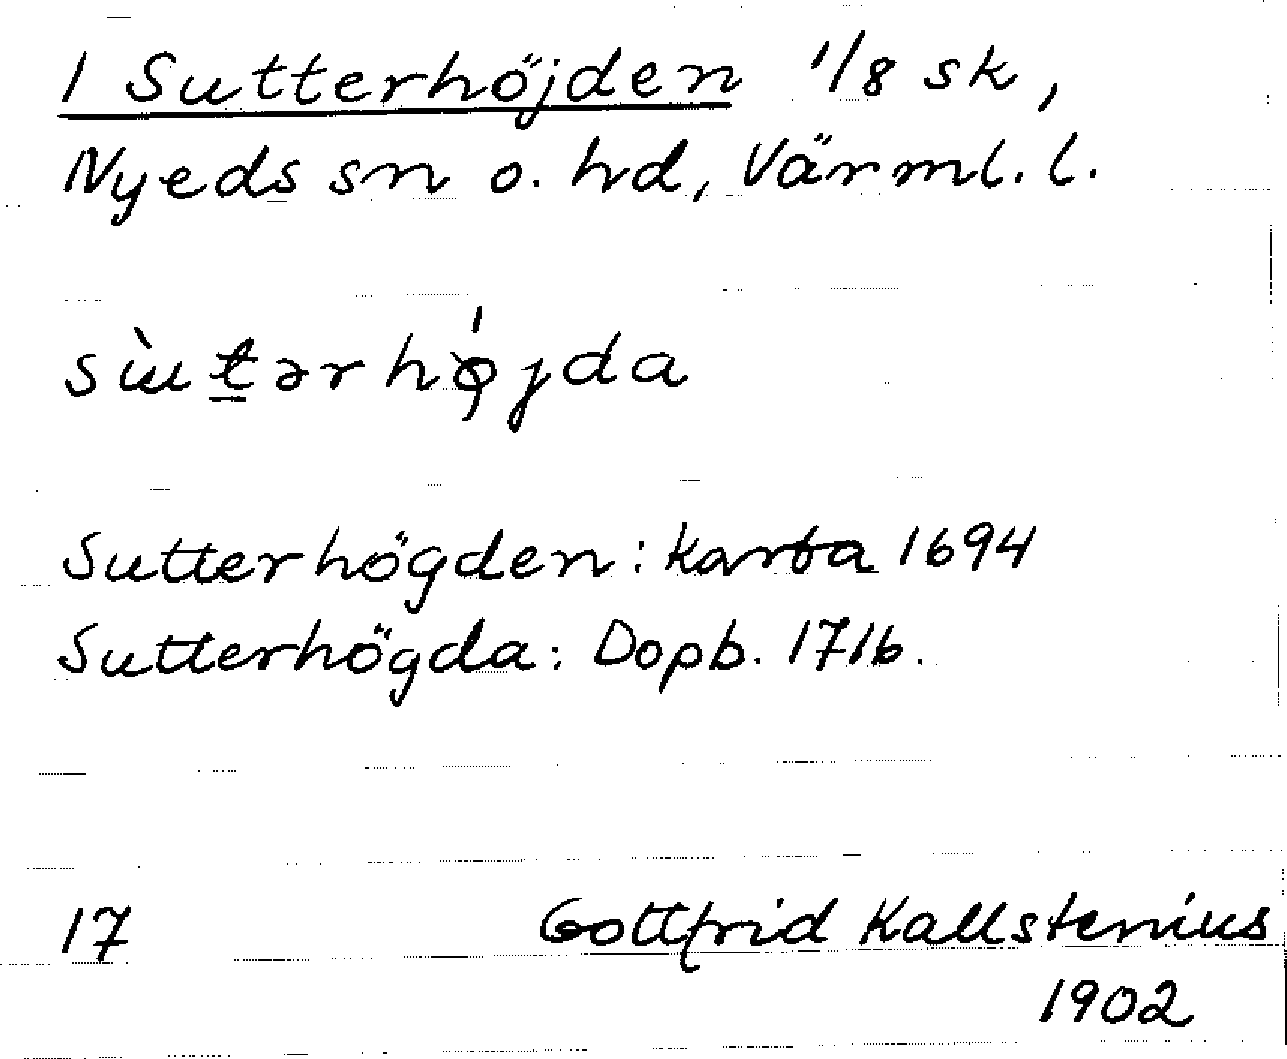 1 Sutterhöjden 1/8 sk,
Nyeds sn o. hd, Värml. l.
sùtərhǫ́jda
Sutterhögden: karta 1694
Sutterhögda: Dopb. 1716.
17 Gottfrid Kallstenius
1902